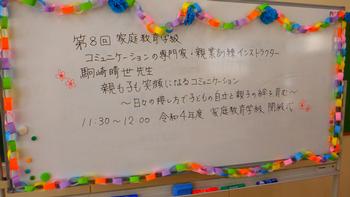 第8回 家庭教育学級
コミュニケーションの専門家・親業訓練インストラクター
駒崎晴世先生
親も子も笑顔になるコミュニケーション
～日々の接し方で子どもの自立と親子の絆を育む～
11:30～12:00 令和4年度 家庭教育学級 閉級式